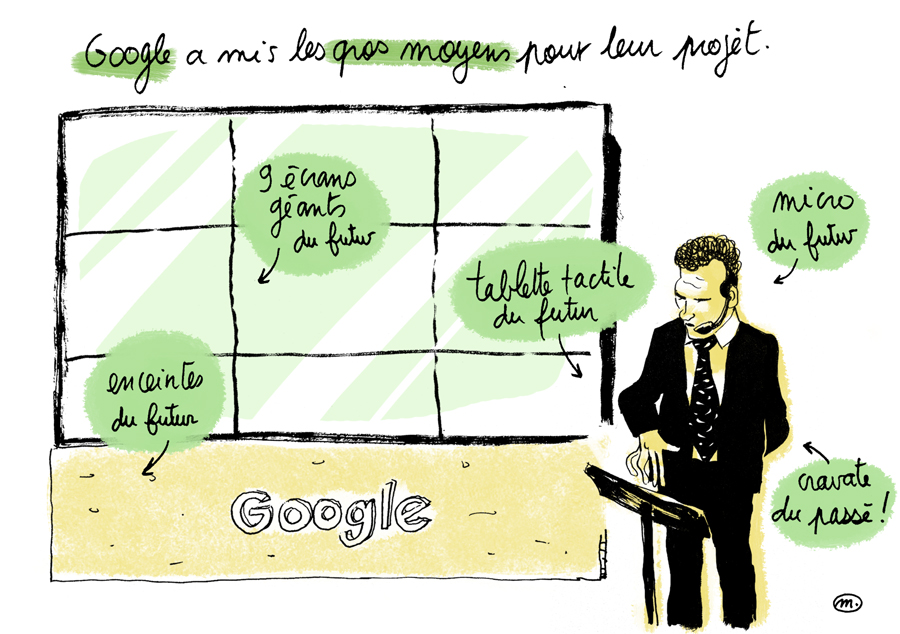 Google a mis les gros moyens pour leur projet.
9 écrans
géants
du futur
micro
du futur
tablette tactile
du futur
enceintes
du futur
Google
cravate
du passé !
m.